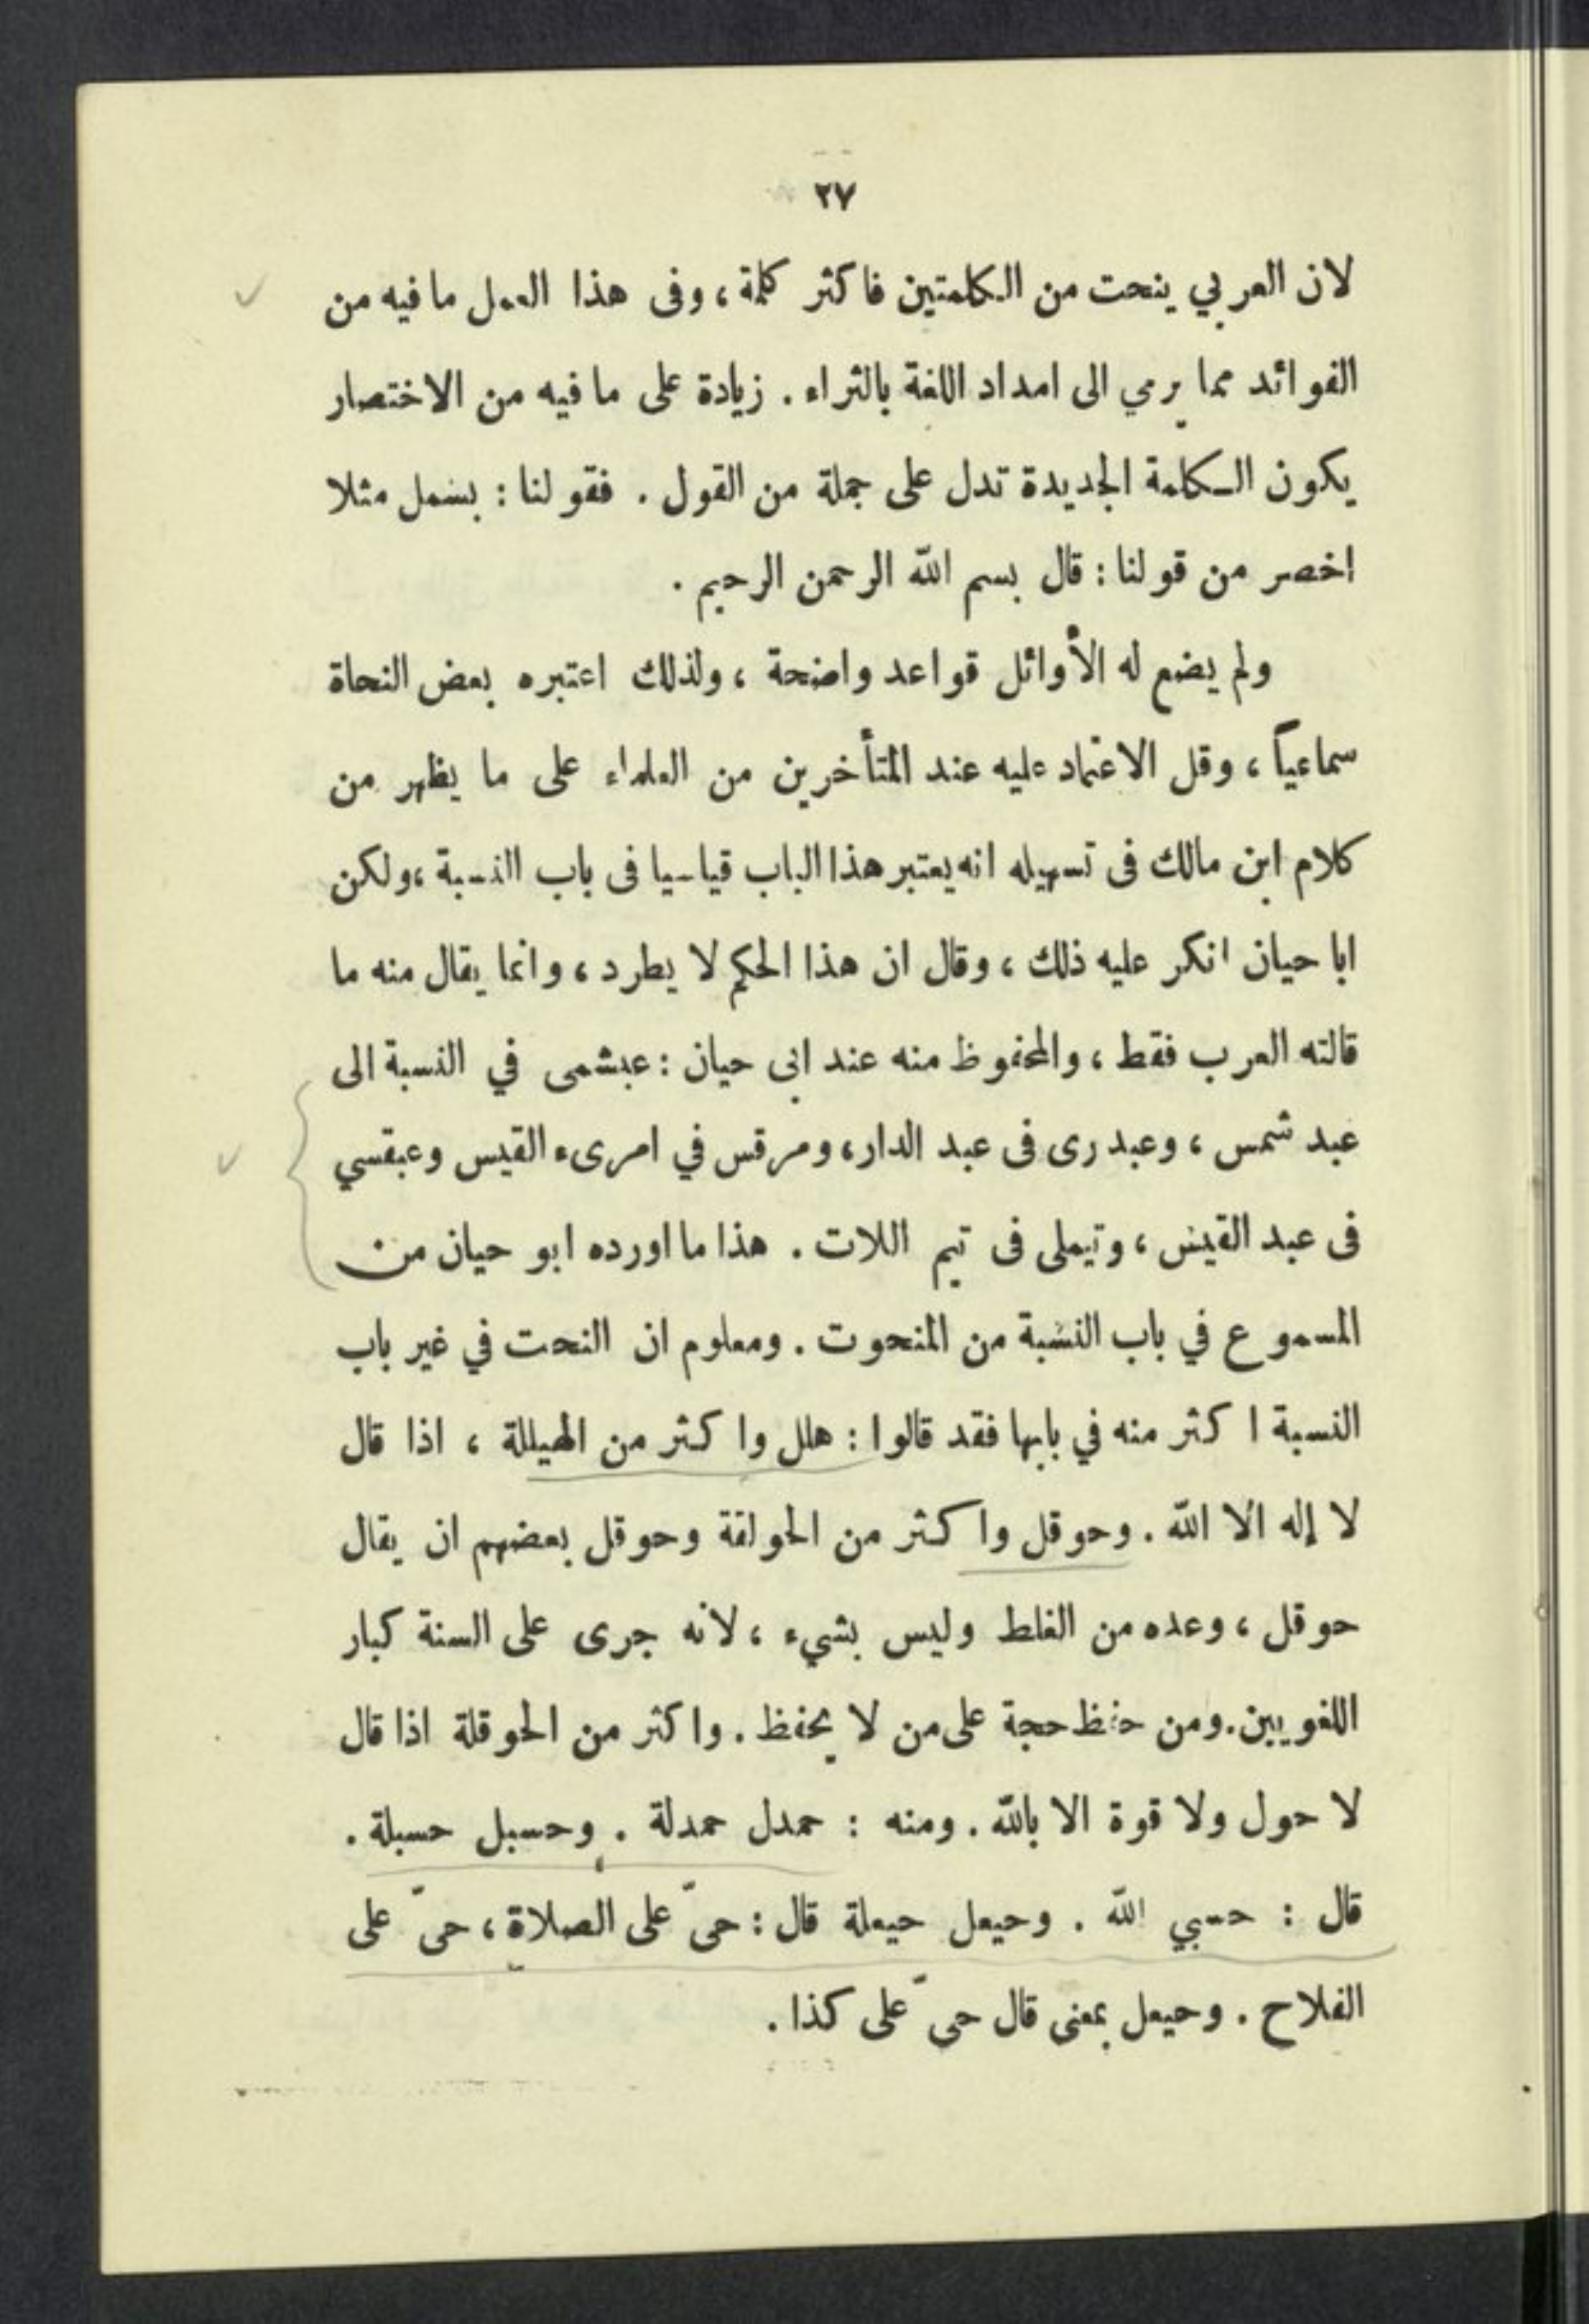 ٢٧
لان العربي ينحت من الكلمتين فاكثر كلمة ، وفى هذا العمل ما فيه من
الفوائد مما يرمي الى امداد اللغة بالثراء . زيادة على ما فيه من الاختصار
يكون الكلمة الجديدة تدل على جملة من القول . فقولنا : بسمل مثلا
اخصر من قولنا : قال بسم الله الرحمن الرحيم .
ولم يضع له الأوائل قواعد واضحة ، ولذلك اعتبره بعض النحاة
سماعياً ، وقل الاعتماد عليه عند المتأخرين من العلماء على ما يظهر من
كلام ابن مالك فى تسهيله انه يعتبر هذا الباب قياسيا فى باب النسبة ، ولكن
ابا حيان انكر عليه ذلك ، وقال ان هذا الحكم لا يطرد ، وانما يقال منه ما
قالته العرب فقط ، والمحفوظ منه عند ابى حيان : عبشمى في النسبة الى
عبد شمس ، وعبدرى فى عبد الدار ، ومرقس في امرىء القيس وعبقسي
فى عبد القيس ، وتيملى فى تيم اللات . هذا ما اورده ابو حيان من
المسموع في باب النسبة من المنحوت . ومعلوم ان النحت في غير باب
النسبة اكثر منه في بابها فقد قالوا : هلل واكثر من الهيللة ، اذا قال
لا إله الا الله . وحوقل واكثر من الحولقة وحوقل بعضهم ان يقال
حوقل ، وعده من الغلط وليس بشيء ، لانه جرى على السنة كبار
اللغويين . ومن حفظ حجة على من لا يحفظ . واكثر من الحوقلة اذا قال
لا حول ولا قوة الا بالله . ومنه : حمدل حمدلة . وحسبل حسبلة .
قال : حسبي الله . وحيعل حيعلة قال : حىّ على الصلاة ، حىّ على
الفلاح . وحيعل بمعنى قال حىّ على كذا .